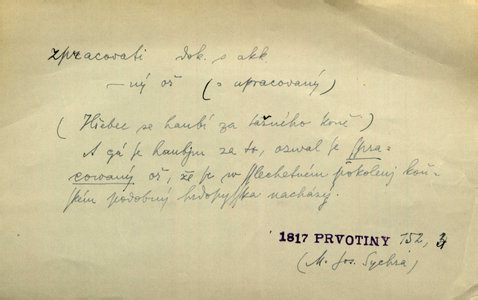 zpracovati dok. s akk.
—ný oš (= upracovaný)
(Hřebec se haubí za tažného koně)
A gá ge haubjm za to, ozwal se spra-
cowaný oš, že ge w šlechetném pokolenj koň-
ském podobný hrdopyška nacházý.
1817 PRVOTINY 152,
(M. Jos. Sychra)